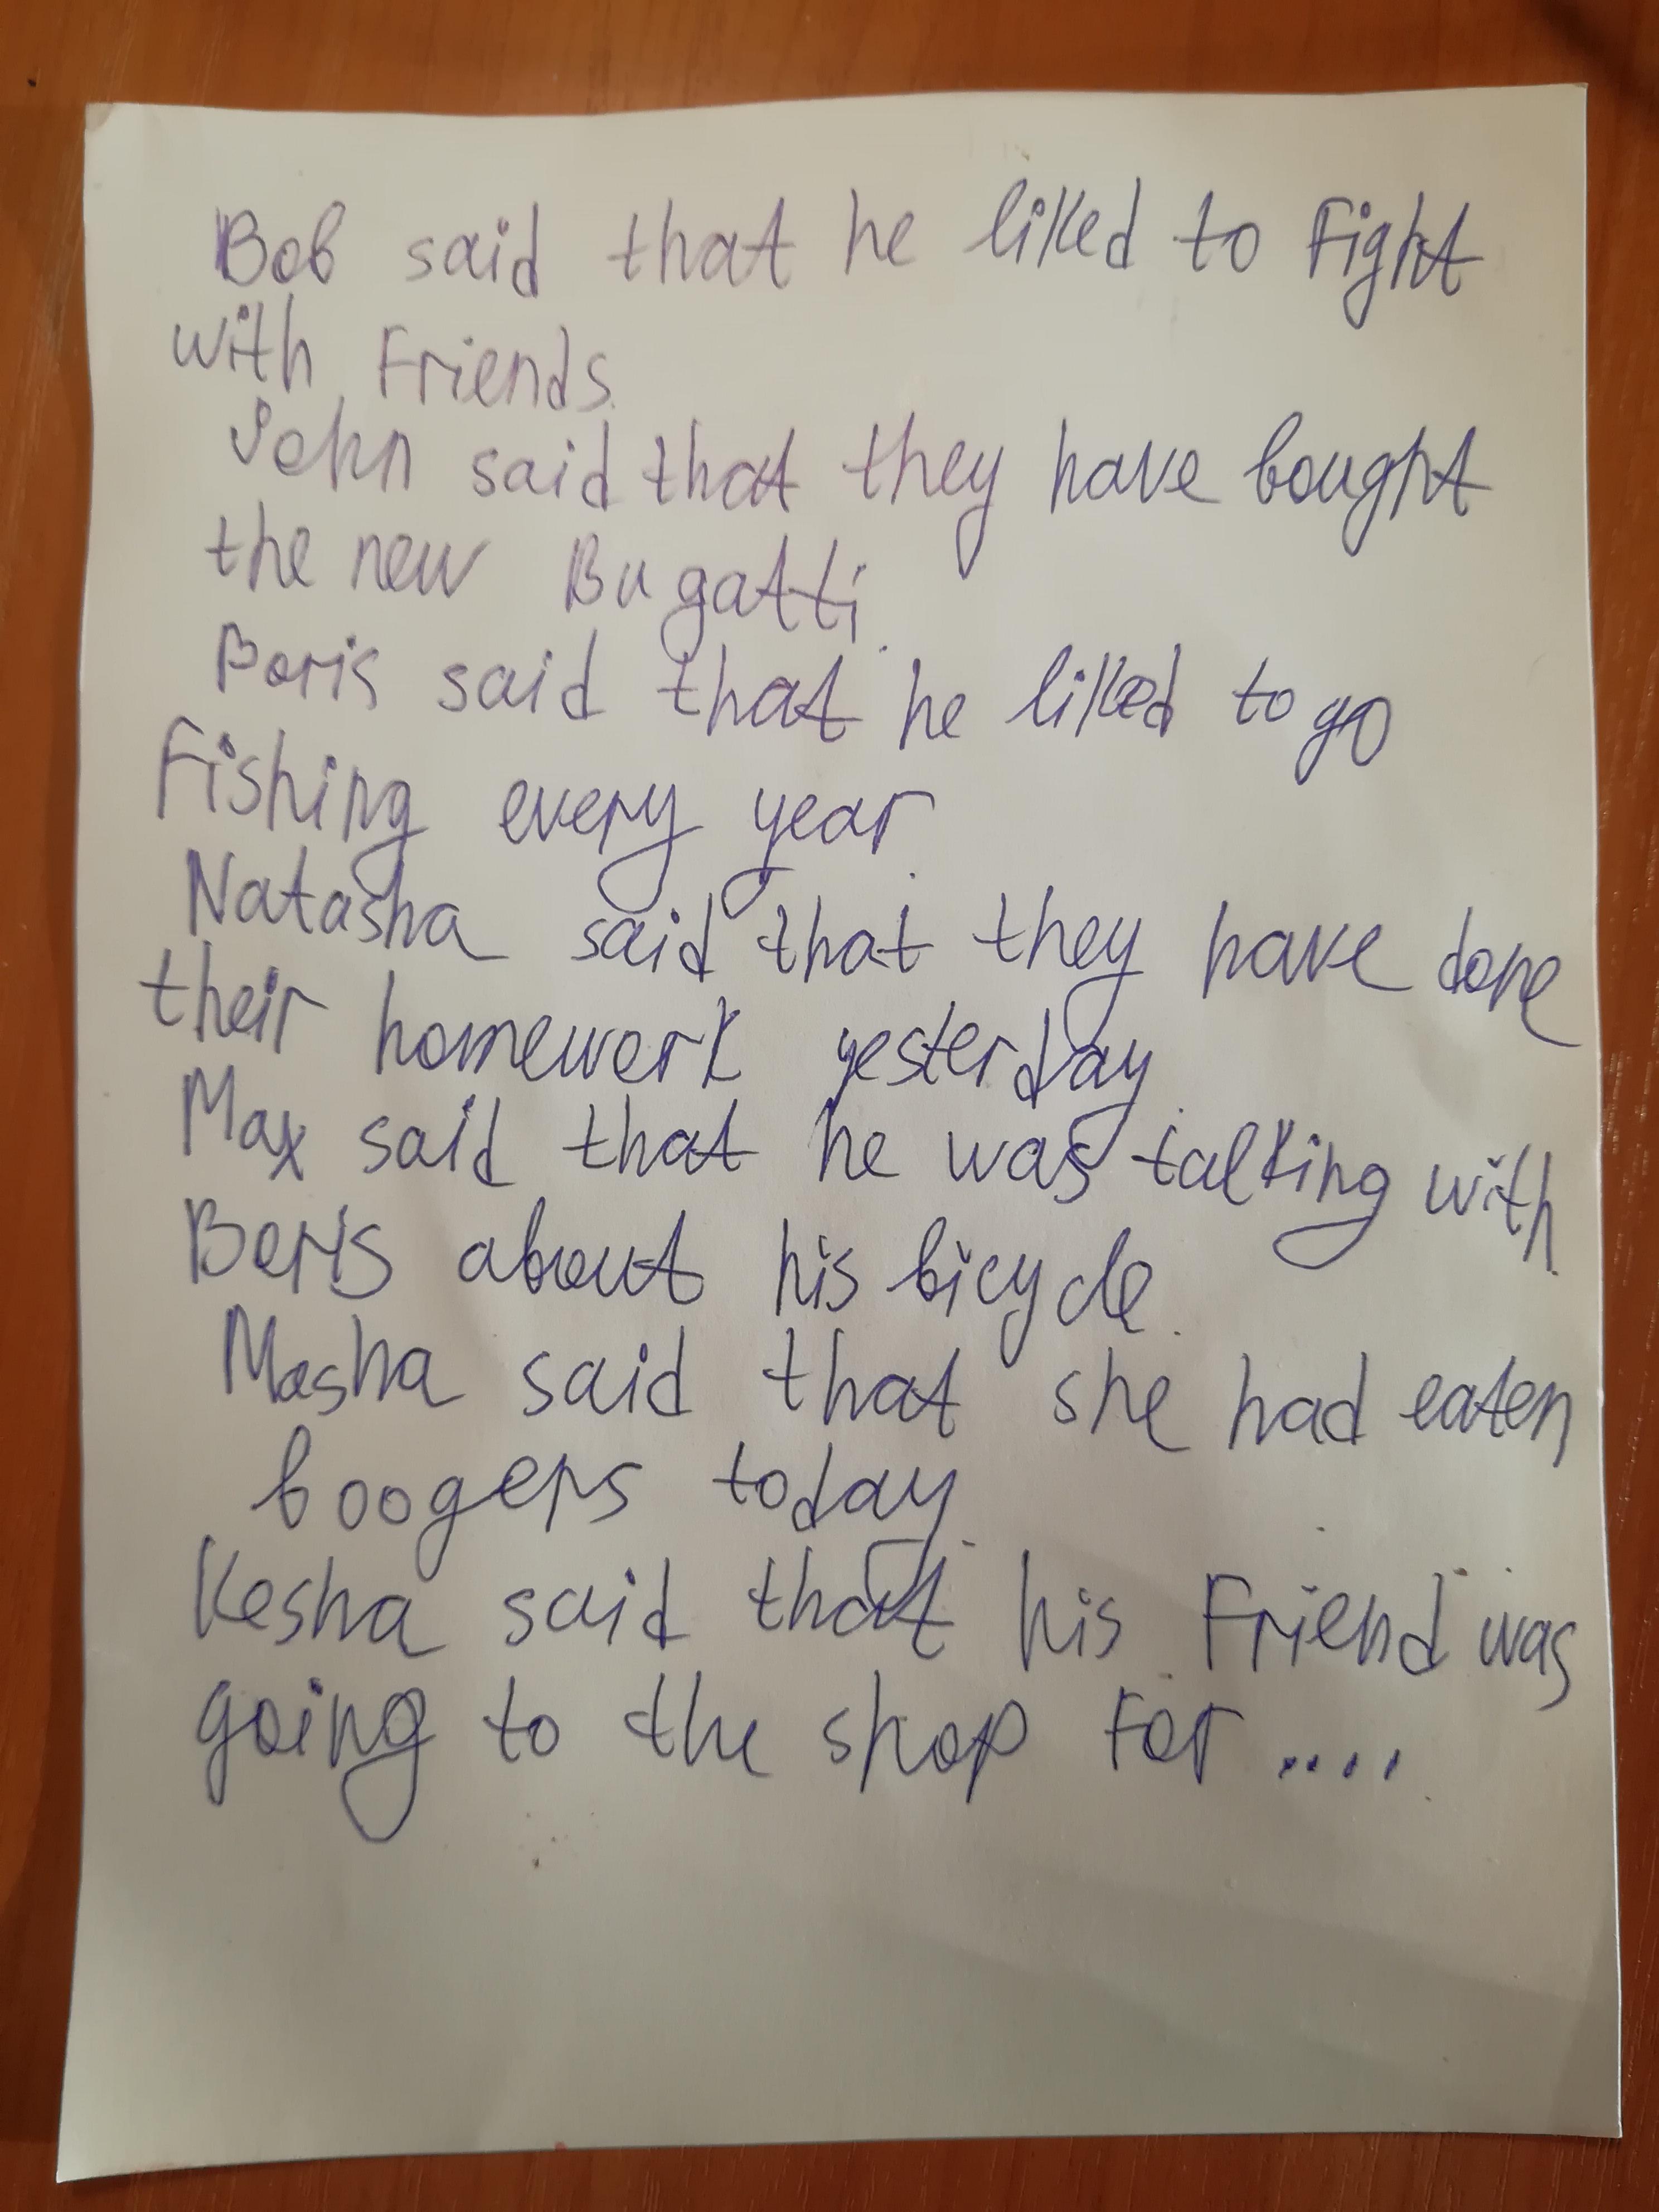 Bob said that he liked to Fight
with Friends.
John said that they have bought
the new Bugatti.
Boris said that he liked to go
Fishing every year.
Natasha said that they have done
their homework yesterday.
Max said that he was talking with
Boris about his bicycle.
Masha said that she had eaten
boogers today.
Kesha said that his Friend was
going to the shop For ....